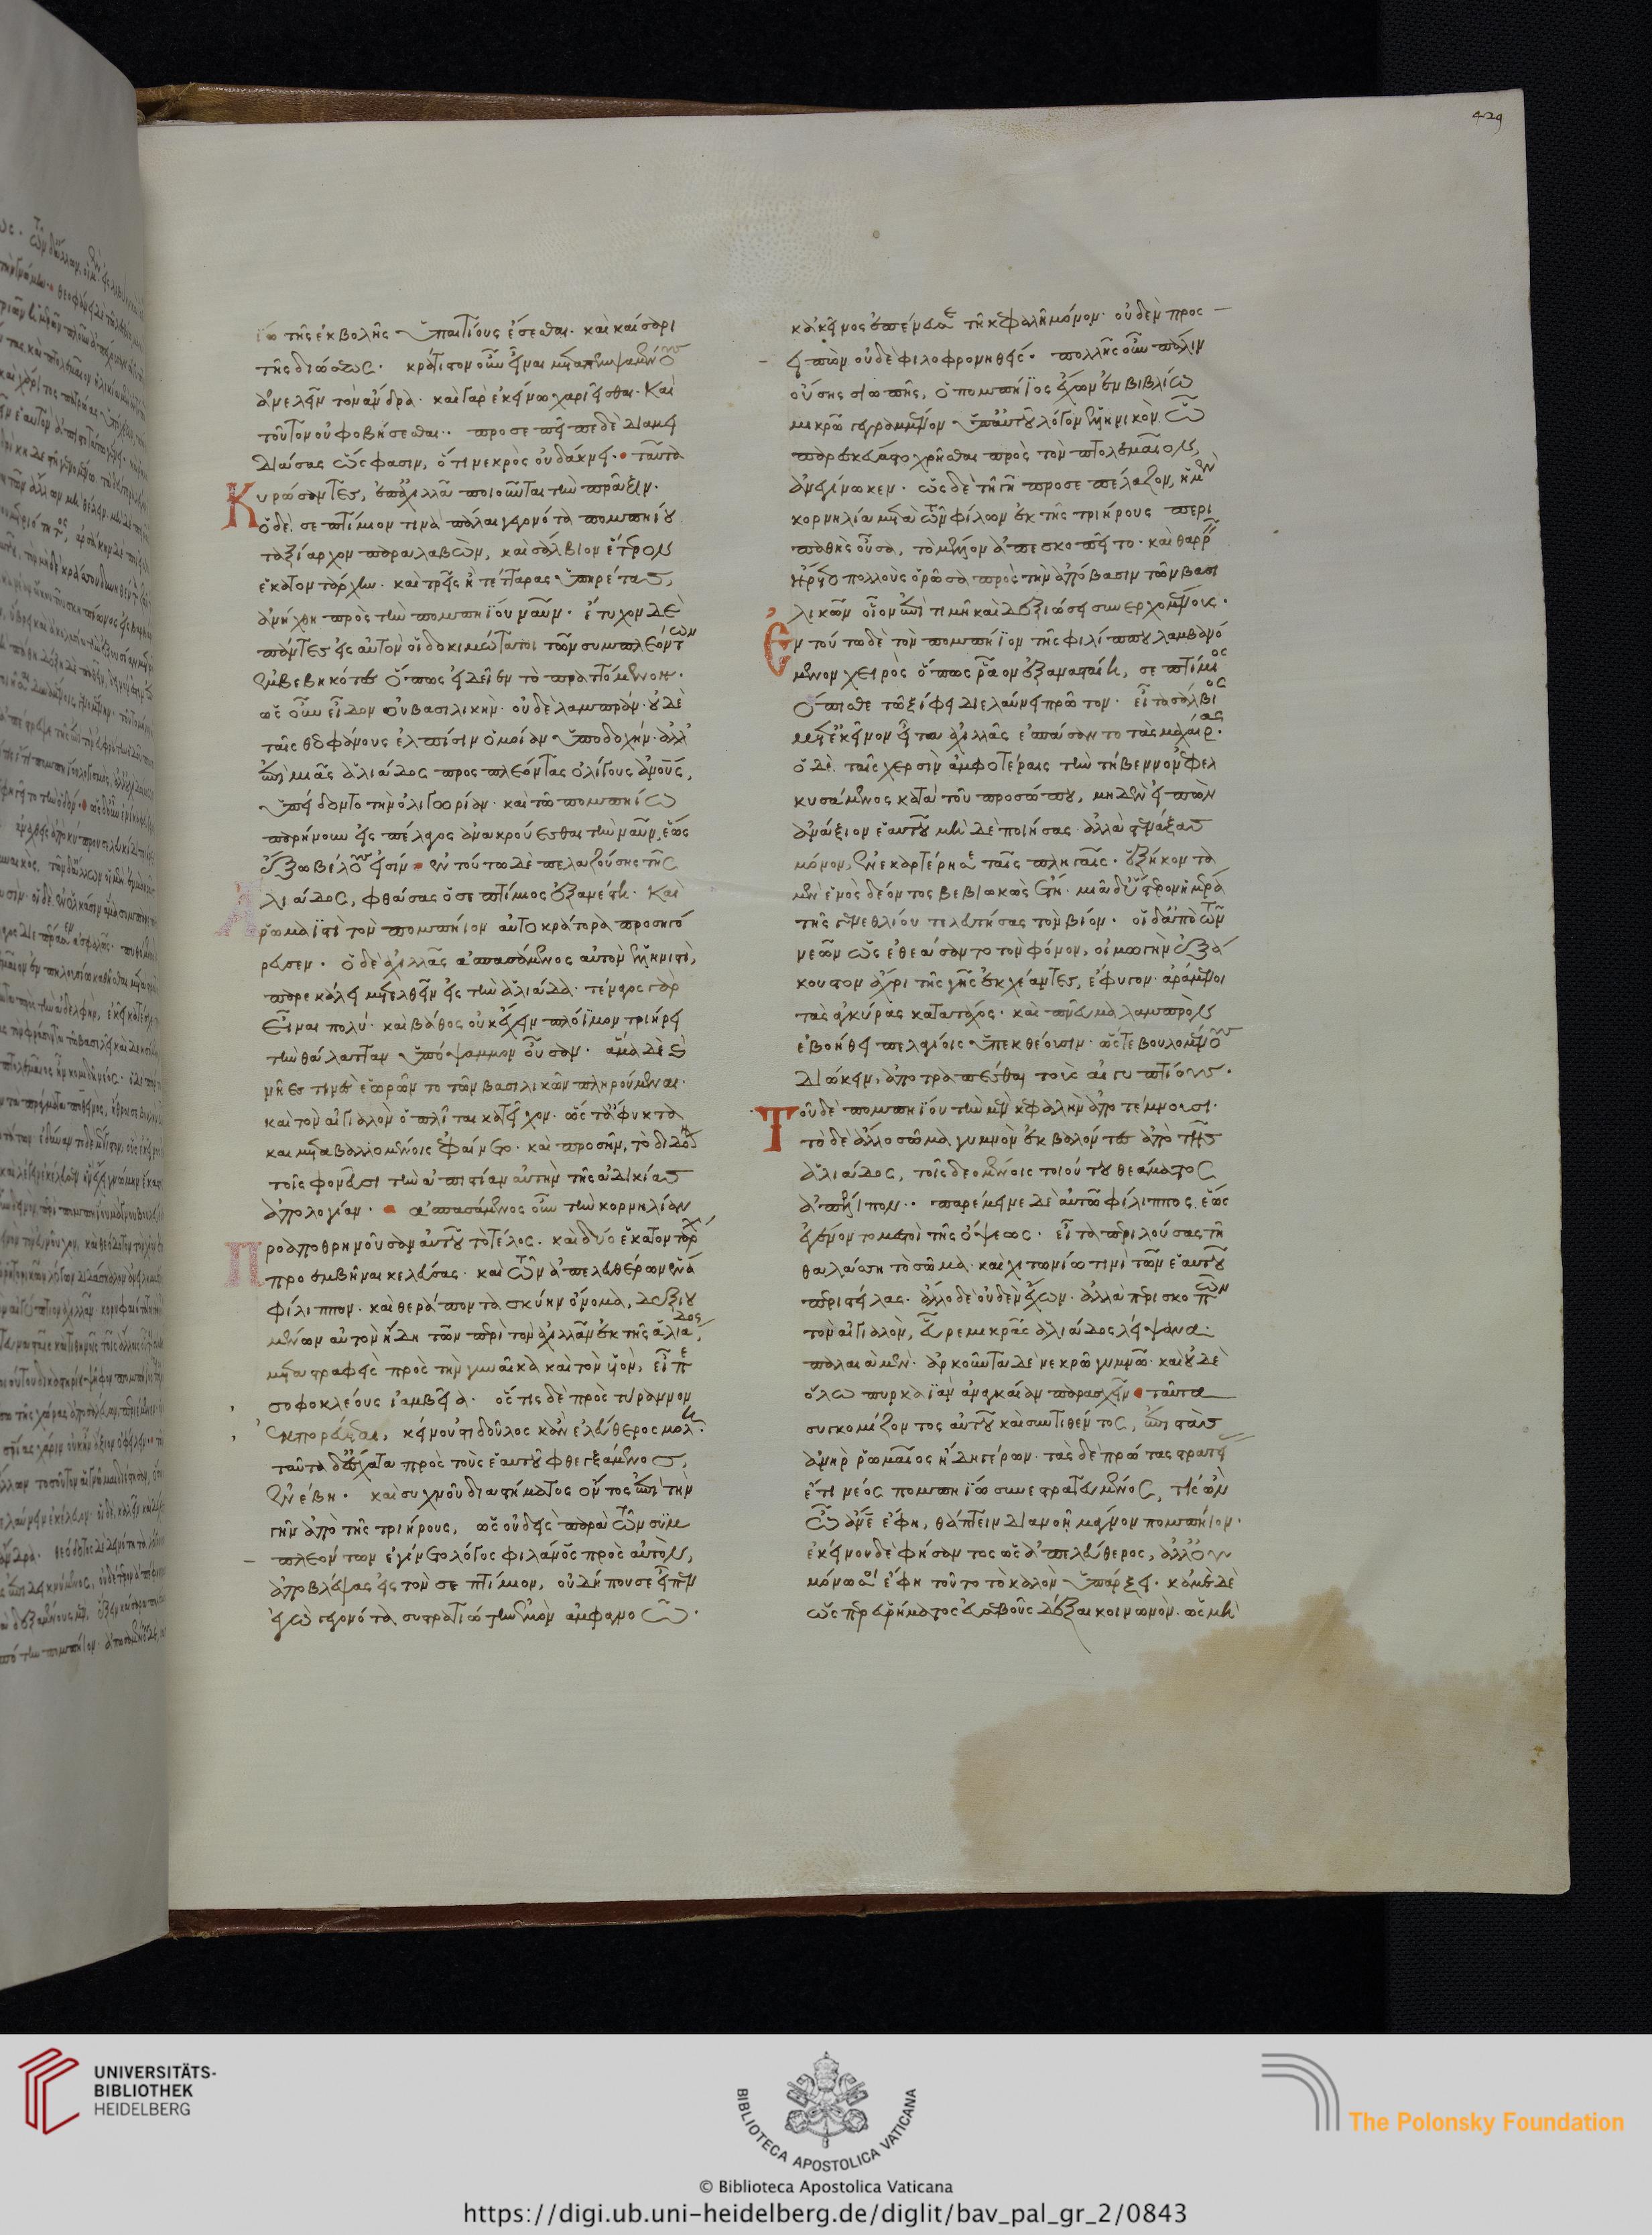 ίω τῆς ἐκβολῆς ὑπαιτίους ἔσεσθαι. καὶ καίσαρι
τῆς διώξεως. κράτιστον οὖν εἶναι μεταπεμψαμένους
ἀνελεῖν τὸν ἄνδρα. καὶ γὰρ ἐκείνω χαριεῖσθαι. καὶ
τοῦτον οὐ φοβήσεσθαι. προσεπεῖπε δὲ διαμει
διάσας ὥς φασιν, ὅτι νεκρὸς οὐ δάκνει. ταῦτα
κυρώσαντες, ἐπ' ἀχιλλᾶ ποιοῦνται τὴν πρᾶξιν.
ὁ δὲ σεπτίμιον τινὰ πάλαι γεγονότα πομπηίου
ταξίαρχον παραλαβὼν, καὶ σάλβιον ἕτερον
ἑκατοντάρχην. καὶ τρεῖς ἢ τέτταρας ὑπηρέτας,
ἀνήχθη πρὸς τὴν πομπηίου ναῦν. ἔτυχον δὲ
πάντες εἰς αὐτὸν οἱ δοκιμώτατοι τῶν συμπλεόντων
ἐμβεβηκότες ὅπως εἰδεῖεν τὸ πραττόμενον.
ὡς οὖν εἶδον οὐ βασιλικὴν. οὐδὲ λαμπρὰν. οὐδὲ
ταῖς θεοφάνους ἐλπίσιν ὁμοίαν ὑποδοχήν. ἀλλ'
ἐπὶ μιᾶς ἁλιάδος προσπλέοντας ὀλίγους ἀνους,
ὑπείδοντο τὴν ὀλιγωρίαν. καὶ τῶ πομπηίω
παρήνουν εἰς πέλαγος ἀνακρούεσθαι τὴν ναῦν, ἕως
ἔξω βέλους εἰσίν. ἐν τούτω δὲ πελαζούσης τῆς
ἁλιάδος, φθάσας ὁ σεπτίμιος ἐξανέστη. καὶ
ῥωμαϊστὶ τὸν πομπήιον αὐτοκράτορα προσηγό
ρευσεν. ὁ δὲ ἀχιλλᾶς ἀσπασάμενος αὐτὸν ἑλληνιστὶ,
παρεκάλει μετελθεῖν εἰς τὴν ἁλιάδα. τέναγος γὰρ
εἶναι πολύ. καὶ βάθος οὐκ ἔχειν πλόϊμον τριήρει
τὴν θάλατταν ὑπόψαμμον οὖσαν. ἅμα δὲ καὶ
νῆες τινὲς ἑωρῶντο τῶν βασιλικῶν πληρούμεναι.
καὶ τὸν αἰγιαλὸν ὁπλῖται κατεῖχον. ὥστ' ἄφυκτα
καὶ μεταβαλλομένοις ἐφαίνετο. καὶ προσῆν, τὸ διδόναι
τοῖς φονεῦσι τὴν ἀπιστίαν αὐτὴν τῆς ἀδικίας
ἀπολογίαν. ἀσπασάμενος οὖν τὴν κορνηλίαν
προαποθρηνοῦσαν αὐτοῦ τὸ τέλος. καὶ δύο ἑκατοντάρχ
προεμβῆναι κελεύσας. καὶ τῶν ἀπελευθέρων ἕνα
φίλιππον. καὶ θεράποντα σκύην ὄνομα, δεξιου
μένων αὐτὸν ἤδη τῶν περὶ τὸν ἀχιλλᾶν ἐκ τῆς ἁλιάδος,
μεταστραφεὶς πρὸς τὴν γυναῖκα καὶ τὸν υἱὸν, εἶπε
σοφοκλέους ἰαμβεῖα. ὅστις δὲ πρὸς τύραννον
ἐμπορεύεται, κείνου στι δοῦλος κἂν ἐλεύθερος μόλη.
ταῦτα δ' ἔσχατα πρὸς τοὺς ἑαυτοῦ φθεγξάμενος,
ἐνέβη. καὶ συχνοῦ διαστήματος ὄντος ἐπὶ τὴν
γῆν ἀπὸ τῆς τριήρους, ὡς οὐδεὶς παρὰ τῶν συμ
πλεόντων ἐγίνετο λόγος φιλάνος πρὸς αὐτὸν,
ἀποβλέψας εἰς τὸν σεπτίμιον, οὐ δή που σε εἶπεν
ἐγὼ γεγονότα συστρατιώτην ἐμὸν ἀμφαγνοῶ.
429
κἀκεῖνος ἐπένευσε τῆ κεφαλῆ μόνον. οὐδὲν προσ
ειπὼν οὐδὲ φιλοφρονηθείς. πολλῆς οὖν πάλιν
οὔσης σιωπῆς, ὁ πομπήϊος ἔχων ἐν βιβλίω
μικρῶ γεγραμμένον ὑπ' αὐτοῦ λόγον ἑλληνικὸν. ὧ
παρεσκεύαστο χρῆσθαι πρὸς τὸν πτολεμαῖον,
ἀνεγίνωσκεν. ὡς δὲ τῆ γῆ προσεπέλαζον, ἡ μὲν
κορνηλία μετὰ τῶν φίλων ἐκ τῆς τριήρους περι
παθὴς οὖσα, τὸ μέλλον ἀπεσκοπεῖτο. καὶ θαρρεῖν
ἤρχετο πολλοὺς ὁρῶσα πρὸς τὴν ἀπόβασιν τῶν βασι
λικῶν οἷον ἐπὶ τιμῆ καὶ δεξιώσει συνερχομένους.
ἐν τούτω δὲ τὸν πομπήϊον τῆς φιλίππου λαμβανό
μενον χειρὸς ὅπως ῥᾶον ἐξανασταίη, σεπτίμιος
ὄπισθε τῶ ξίφει διελαύνει πρῶτον. εἶτα σάλβιος
μετ' ἐκεῖνον εἶτα ἀχιλλᾶς ἐσπάσαντο τὰς μαχαίρας.
ὁ δὲ. ταῖς χερσὶν ἀμφοτέραις τὴν τήβεννον ἐφελ
κυσάμενος κατὰ τοῦ προσώπου, μηδὲν εἰπὼν
ἀνάξιον ἑαυτοῦ μηδὲ ποιήσας. ἀλλὰ στενάξας
μόνον, ἐνεκαρτέρησε ταῖς πληγαῖς. ἑξήκοντα
μὲν ἑνὸς δέοντος βεβιωκὼς ἔτη. μιᾶ δ' ὕστερον ἡμέρα
τῆς γενεθλίου τελευτήσας τὸν βίον. οἱ δ' ἀπὸ τῶν
νεῶν ὡς ἐθεάσαντο τὸν φόνον, οἰμωγὴν ἐξά
κουστον ἄχρι τῆς γῆς ἐκχέαντες, ἔφυγον. ἀράμενοι
τὰς ἀγκύρας κατὰ τάχος. καὶ πνεῦμα λαμπρὸν
ἐβοήθει πελαγίοις ὑπεκθέουσιν. ὥστε βουλομένους
διώκειν, ἀποτραπέσθαι τοὺς αἰγυπτίους.
τοῦ δὲ πομπηίου τὴν μὲν κεφαλὴν ἀποτέμνουσι.
τὸ δὲ ἄλλο σῶμα γυμνὸν ἐκβαλόντες ἀπὸ τῆς
ἁλιάδος, τοῖς δεομένοις τοιούτου θεάματος
ἀπέλιπον. παρέμεινε δὲ αὐτῶ φίλιππος, ἕως
ἐγένοντο μεστοὶ τῆς ὄψεως. εἶτα περιλούσας τῆ
θαλάσση τὸ σῶμα. καὶ χιτωνίω τινὶ τῶν ἑαυτοῦ
περιστείλας. ἄλλο δὲ οὐδὲν ἔχων. ἀλλὰ περισκοπῶν
τὸν αἰγιαλὸν, εὗρε μικρᾶς ἁλιάδος λείψανα.
παλαιὰ μὲν. ἀρκοῦντα δὲ νεκρῶ γυμνῶ. καὶ οὐδὲ
ὅλω πυρκαϊὰν ἀναγκαίαν παρασχεῖν. ταῦτα
συγκομίζοντος αὐτοῦ καὶ συντιθέντος, ἐπιστὰς
ἀνὴρ ῥωμαῖος ἤδη γέρων. τὰς δὲ πρώτας στρατεί
ἔτι νέος πομπηίω συνεστρατευμένος, τίς ὢν
ὦ ἄνε ἔφη, θάπτειν διανοῆ μάγνον πομπήιον.
ἐκείνου δὲ φήσαντος ὡς ἀπελεύθερος, ἀλλ' οὐ
μόνω σοι ἔφη τοῦτο τὸ καλὸν ὑπάρξει. κἀμὲ δὲ
ὥσπερ εὑρήματος εὐσεβοῦς δέξαι κοινωνὸν. ὡς μὴ
UNIVERSITÄTS-
BIBLIOTHEK
HEIDELBERG
BIBLIOTECA APOSTOLICA VATICANA
The Polonsky Foundation
© Biblioteca Apostolica Vaticana
https://digi.ub.uni-heidelberg.de/diglit/bav_pal_gr_2/0843